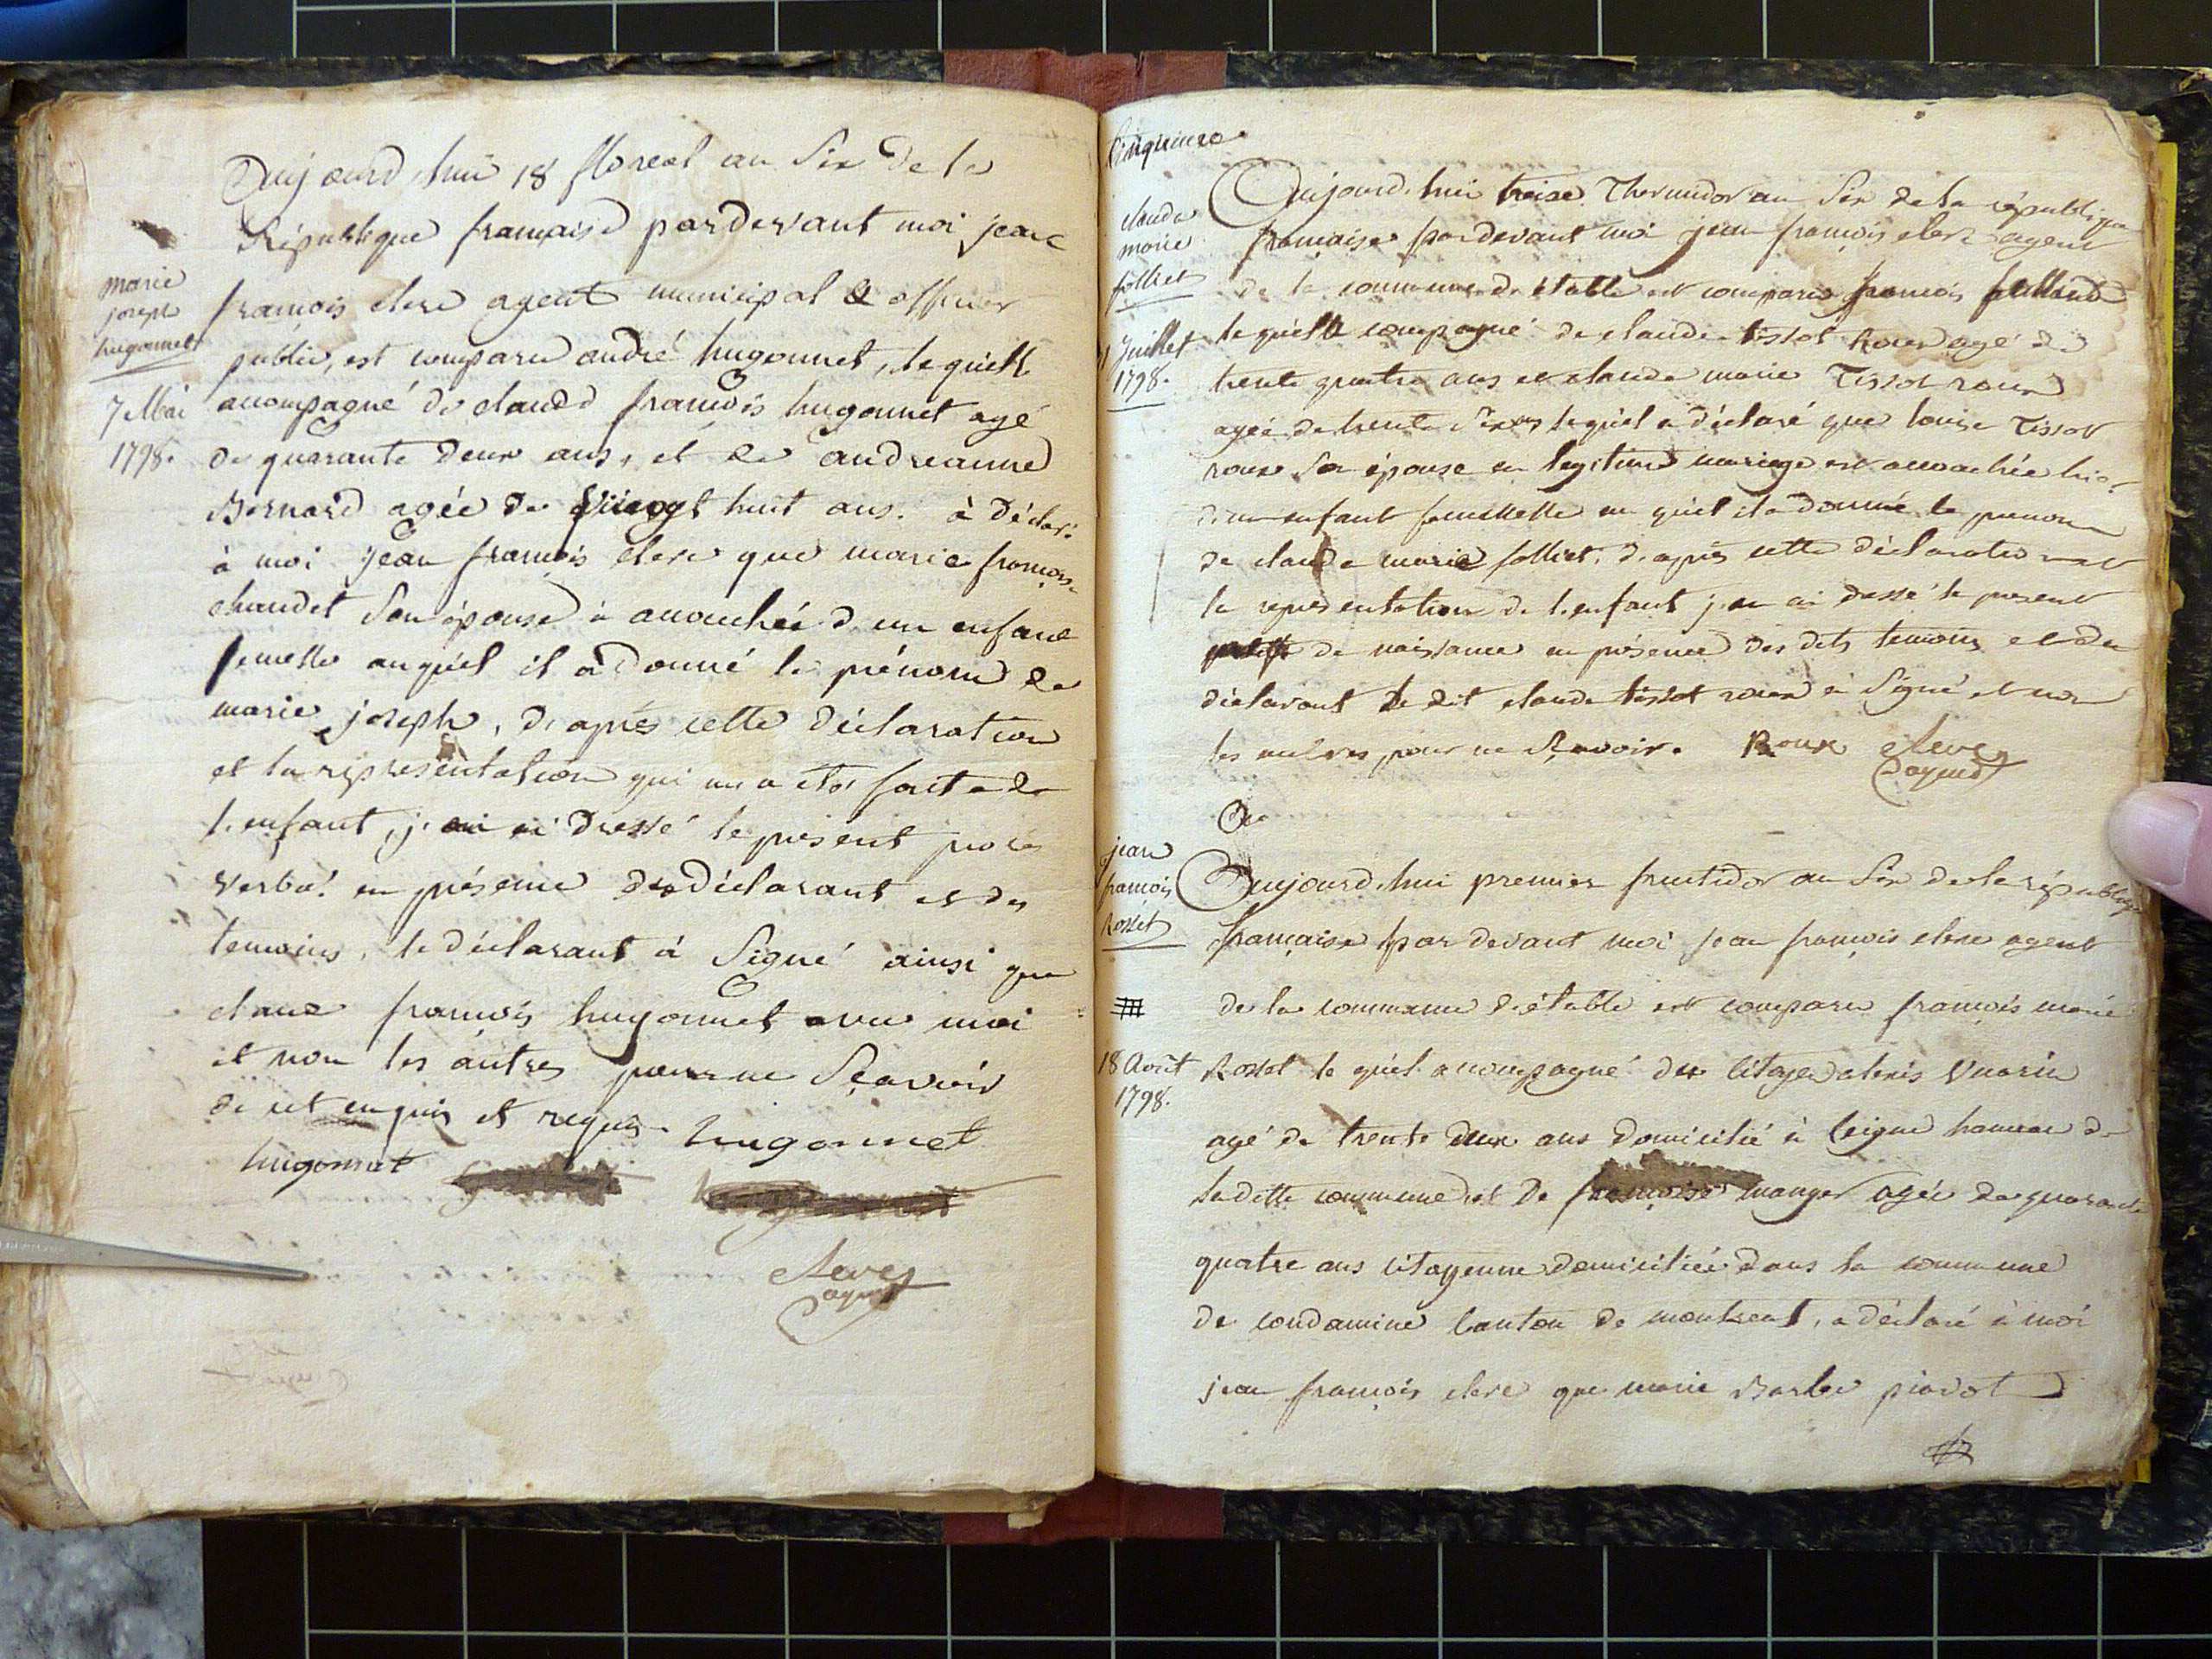 Aujourd'hui 18 floreal an Six De la
République francaise pardevant moi jean
marie
joseph
hugonnet
7 Mai
1798.
francois clerc agent municipal & officier
public, est comparu andré hugonnet, le quel
accompagné de claude francois hugonnet agé
de quarante Deux ans, et de andreanne
Bernard agée de vingt huit ans. à Déclaré
à moi jean francois clerc que marie francoise
chaudet Son épouse à accouchée d'un enfant
femelle auquel il à donné le prénom de
marie joseph, d'après cette déclaration
et la representation qui m'a été faite de
l'enfant, j'en ai dressé le présent procés
verbal en présence du déclarant et des
temoins, le déclarant à Signé ainsi que
claude francois hugonnet avec moi
et non les autres pour ne Sçavoir
de cet enquis et requis. hugonnet
hugonnet
clerc
agent
Cinquieme
claude
marie
folliet
Juillet
1798.
Aujourd'hui treize Thermidor an Six de la république
francaise pardevant moi jean francois clerc agent
de la commune d'étable est comparu francois
le quel compagné de claude tissot roux agé de
trente quatre ans et claude marie Tissot roux
agée de trente lequel a déclaré que louise Tissot
roux Son épouse en legitime mariage est accouchée hier
d'un enfant femelle au quel il a donné le prenom
de claude marie folliet. d'après cette déclaration et
la representation de l'enfant j'en ai dressé le present
de naissance en présence des dits temoins et du
déclarant le dit claude tissot roux à Signé et non
les autres pour ne Sçavoir. Roux clerc
agent
jean
francois
Rosset
18 Août
1798.
Aujourd'hui premier fructidor an Six de la république
francaise par devant moi jean francois clerc agent
de la commune d'étable est comparu francois marie
Rosset le quel accompagné du Citoyen alexis Vuarin
agé de trente deux ans domicilié à Ceigne hameau de
ladite commune et De francoise manger agée de quarante
quatre ans citoyenne domiciliée dans la commune
de condamine Canton de montreal, a déclaré à moi
jean francois clerc que marie Barbe piodot